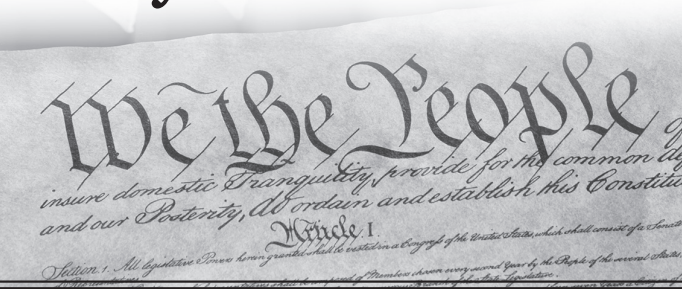 We the People of
insure domestic Tranquility, provide for the common
and our Posterity, do ordain and establish this
Article. I.
Section. 1. All legislative Powers herein granted shall be vested in a Congress of the United States, which shall consist of a
of Members chosen every second Year by the People of the several States,